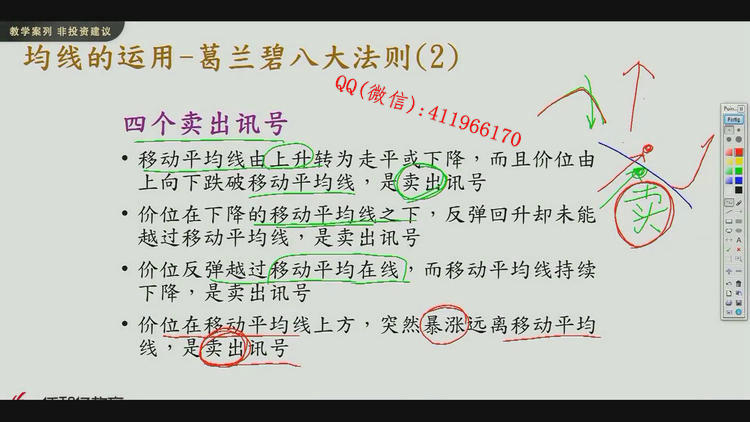 教学案列 非投资建议
均线的运用-葛兰碧八大法则(2)
QQ(微信):411966170
四个卖出讯号
• 移动平均线由上升转为走平或下降，而且价位由
上向下跌破移动平均线，是卖出讯号
• 价位在下降的移动平均线之下，反弹回升却未能
越过移动平均线，是卖出讯号
• 价位反弹越过移动平均在线，而移动平均线持续
下降，是卖出讯号
• 价位在移动平均线上方，突然暴涨远离移动平均
线，是卖出讯号
卖